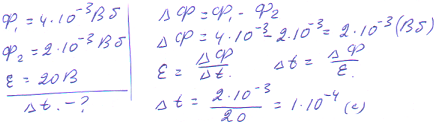 φ₁ = 4·10⁻³ Вб
φ₂ = 2·10⁻³ Вб
ε = 20 В
Δt. – ?
Δφ = φ₁ - φ₂
Δφ = 4·10⁻³ - 2·10⁻³ = 2·10⁻³ (Вб)
ε = Δφ/Δt. Δt = Δφ/ε.
Δt = 2·10⁻³/20 = 1·10⁻⁴ (с)